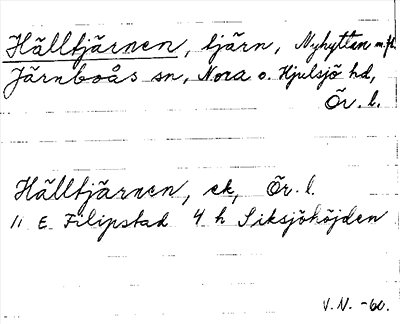 Hälltjärnen, tjärn, Nyhyttan m.fl.
Järnboås sn, Nora o. Hjulsjö hd,
Ör. l.
Hälltjärnen, ek, Ör. l.
11 E Filipstad 4 h Siksjöhöjden
V.N. -60.